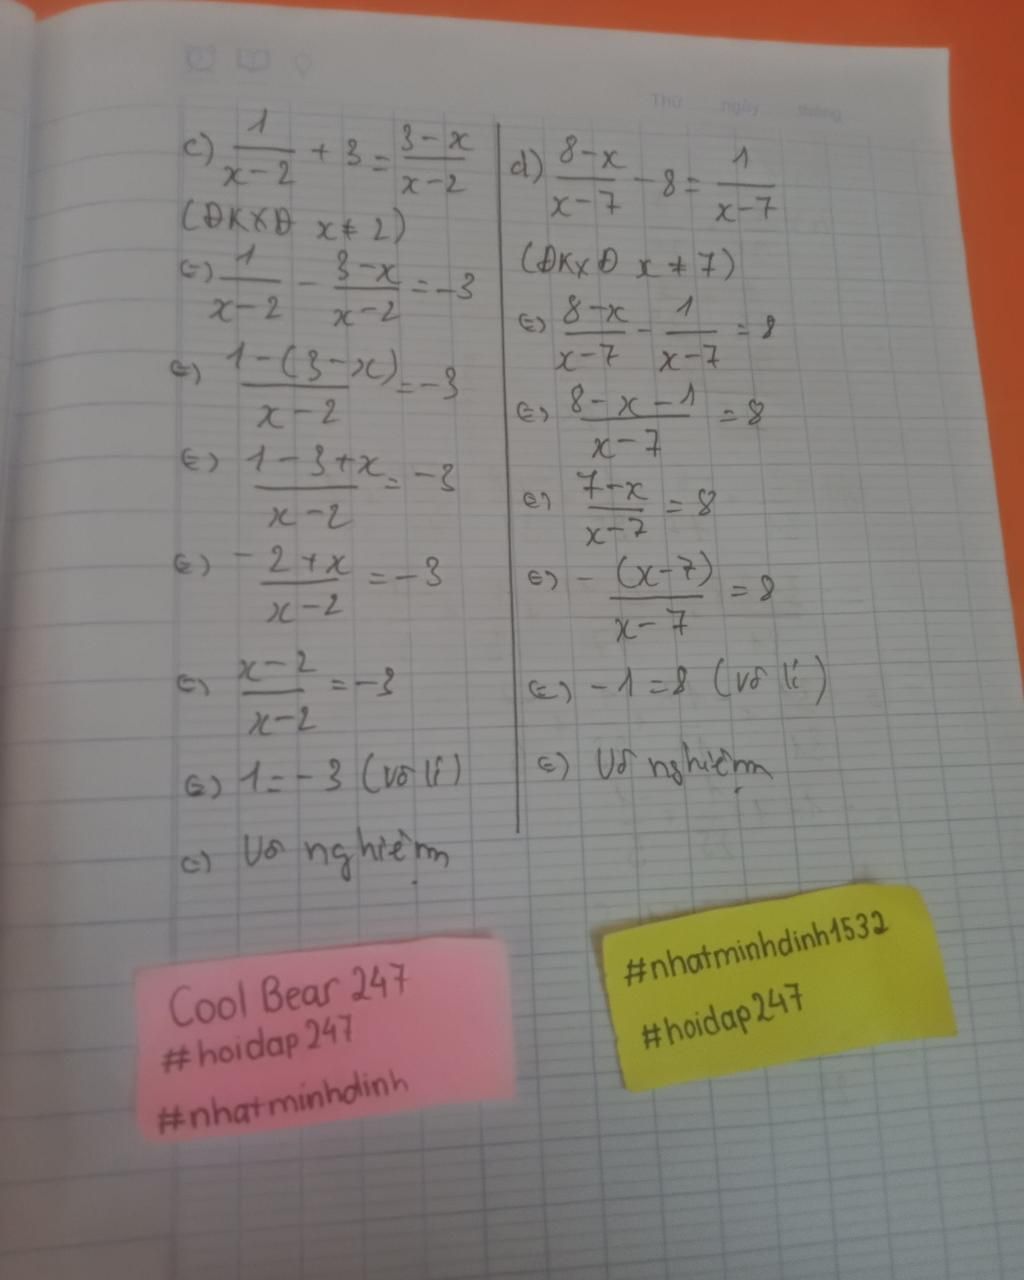 Thứ ngày tháng
c) 1/(x-2) + 3 = (3-x)/(x-2)
(ĐKXĐ x ≠ 2)
(=) 1/(x-2) - (3-x)/(x-2) = -3
(=) (1-(3-x))/(x-2) = -3
(=) (1-3+x)/(x-2) = -3
(=) (-2+x)/(x-2) = -3
(=) (x-2)/(x-2) = -3
(=) 1 = -3 (vô lí)
(=) Vô nghiệm
d) (8-x)/(x-7) - 8 = 1/(x-7)
(ĐKXĐ x ≠ 7)
(=) (8-x)/(x-7) - 1/(x-7) = 8
(=) (8-x-1)/(x-7) = 8
(=) (7-x)/(x-7) = 8
(=) -(x-7)/(x-7) = 8
(=) -1 = 8 (vô lí)
(=) Vô nghiệm
Cool Bear 247
#hoidap247
#nhatminhdinh
#nhatminhdinh1532
#hoidap247